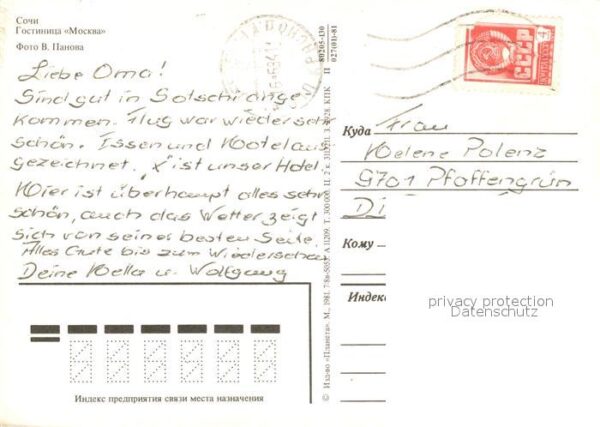 Сочи
Гостиница «Москва»
Фото В. Панова
Liebe Oma!
Sind gut in Sotschi ange
kommen. Flug war wieder seh
schön. Essen und Hotel aus
gezeichnet. "x" ist unser Hotel.
Hier ist überhaupt alles sehr
schön, auch das Wetter zeigt
sich von seiner besten Seite.
Alles Gute bis zum Wiedersehen
Deine Hella u. Wolfgang
Индекс предприятия связи места назначения
© Изд-во «Планета». М., 1981. 7/8в-5055. А 11209. Т. 300 000. Ц. 2 к. З. 3028. КПК
П 80205-430
027(01)-81
СССР
Куда Frau
Helene Polenz
9701 Pfaffengrün
DI
Кому
Индекс
privacy protection
Datenschutz